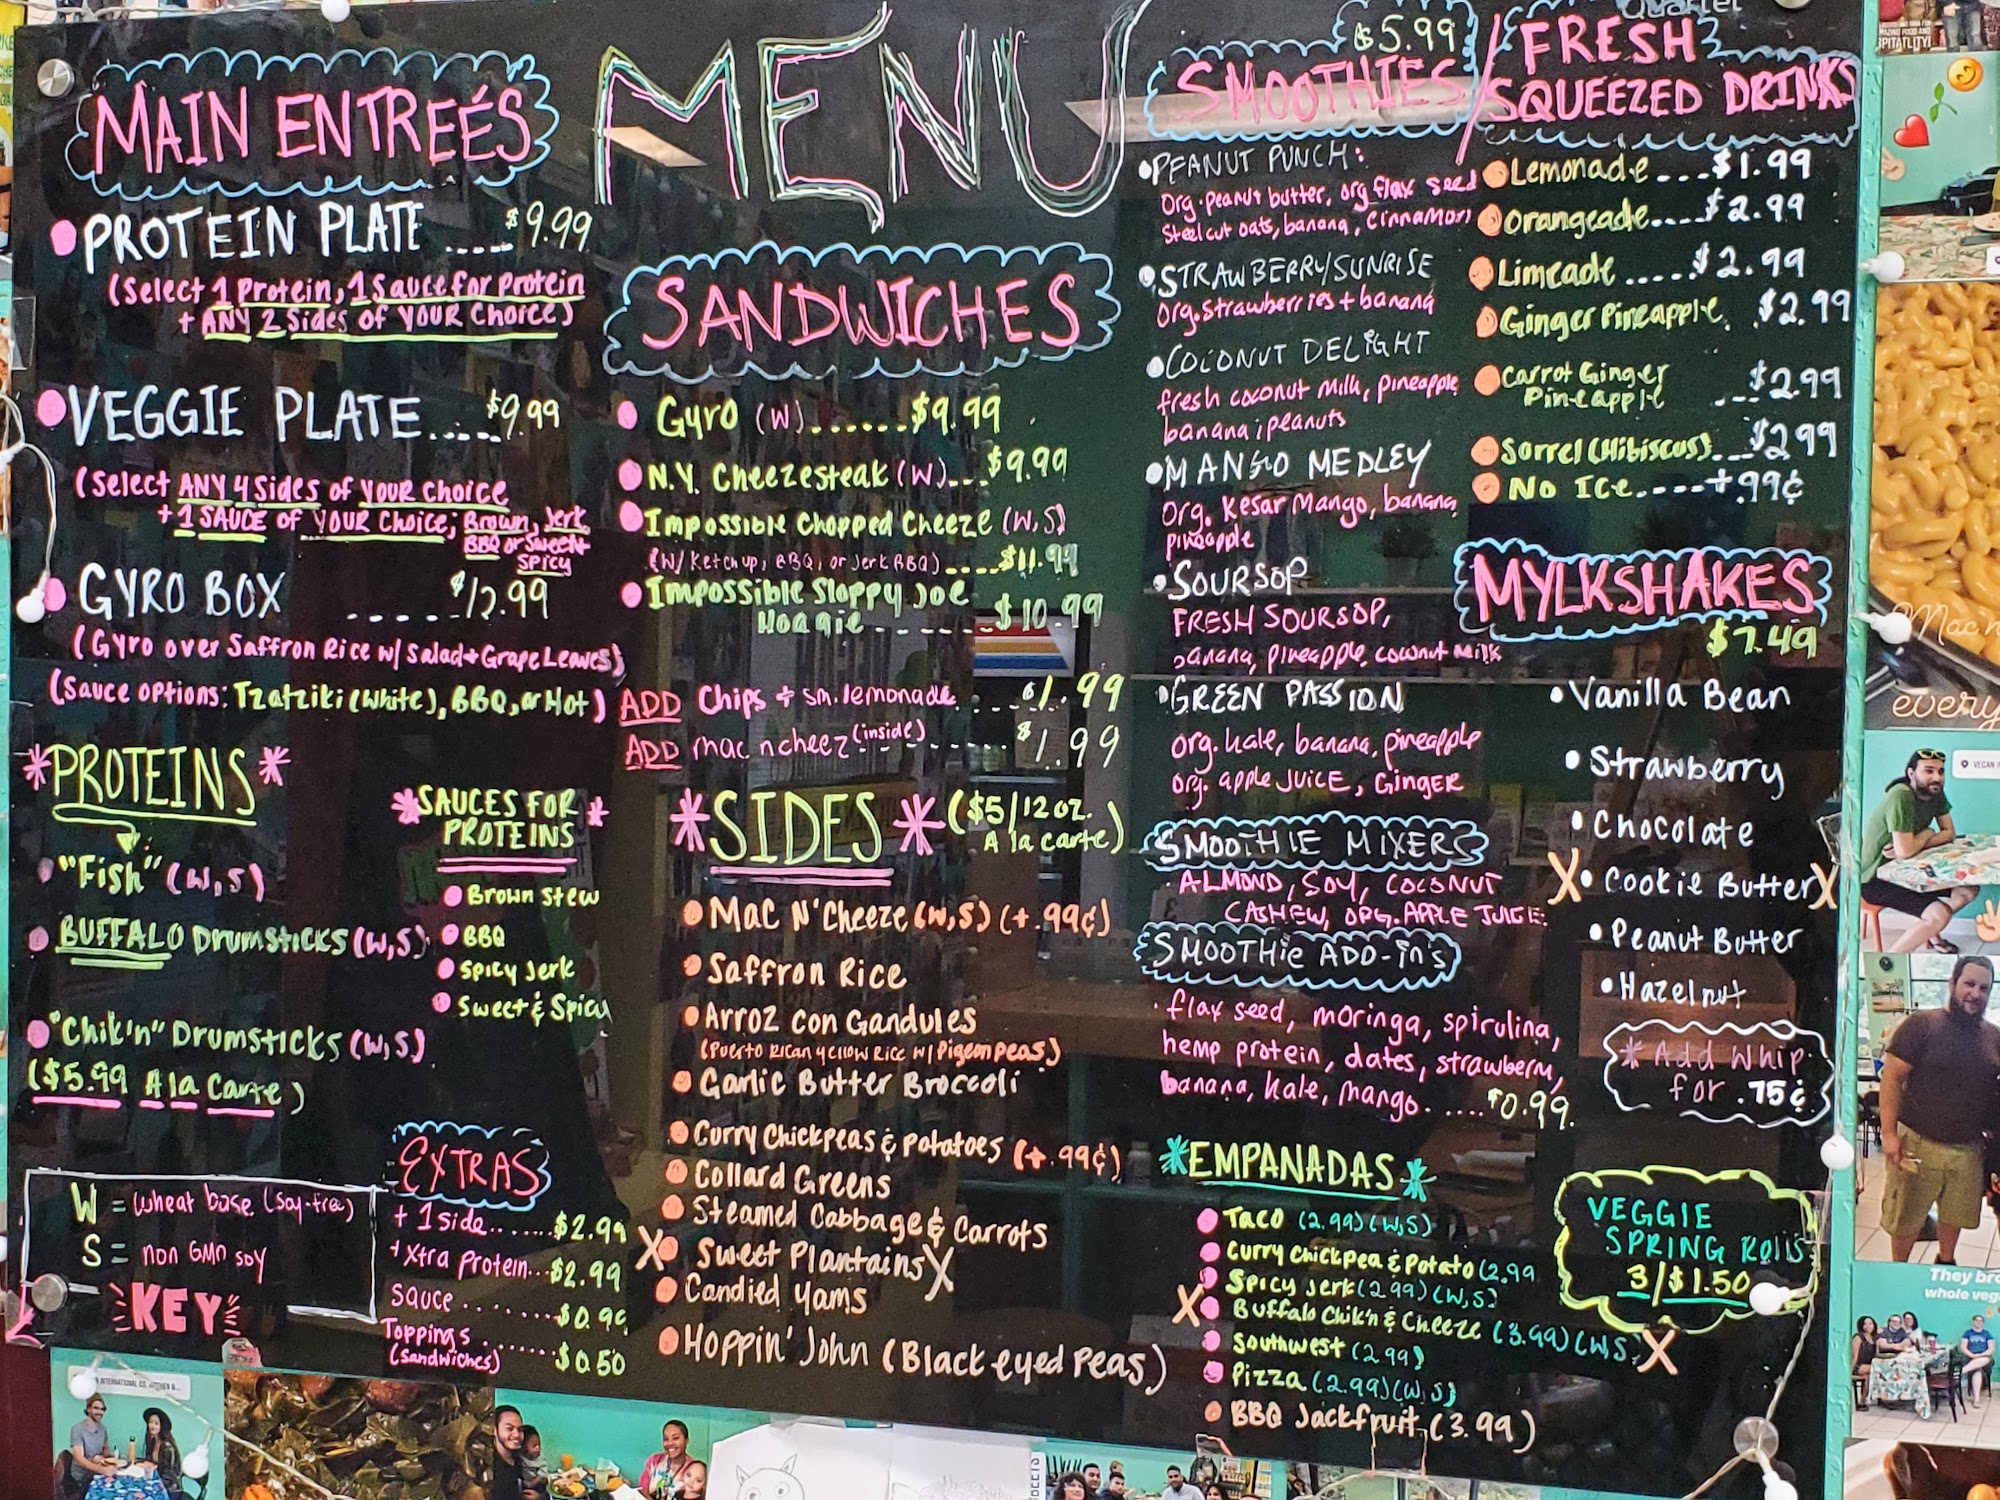 MENU
MAIN ENTREÉS
PROTEIN PLATE ..... $9.99
(Select 1 Protein, 1 Sauce for Protein
+ ANY 2 Sides of YOUR Choice)
VEGGIE PLATE ..... $9.99
(Select ANY 4 Sides of YOUR Choice
+ 1 SAUCE of YOUR Choice; Brown, Jerk,
BBQ or Sweet+
Spicy
GYRO BOX ..... $12.99
(Gyro over Saffron Rice w/ Salad + Grape Leaves)
(Sauce options: Tzatziki (white), BBQ, or Hot)
*PROTEINS*
"Fish" (W,S)
BUFFALO Drumsticks (W,S)
"Chik'n" Drumsticks (W,S)
($5.99 A la Carte)
*SAUCES FOR
PROTEINS*
Brown Stew
BBQ
Spicy Jerk
Sweet & Spicy
W = wheat base (soy-free)
S = non GMO soy
KEY
EXTRAS
+ 1 side........$2.99
+ Xtra Protein...$2.99
Sauce ........$0.99
Toppings .......$0.50
(sandwiches)
SANDWICHES
Gyro (W)......$9.99
N.Y. Cheezesteak (W)...$9.99
Impossible Chopped Cheeze (W,S)
(W/ Ketchup, BBQ, or Jerk BBQ)....$11.99
Impossible Sloppy Joe
Hoagie .......$10.99
ADD Chips + sm. lemonade....$1.99
ADD mac n cheez (inside).......$1.99
*SIDES* ($5/12oz.
A la carte)
Mac N' Cheeze (W,S) (+.99¢)
Saffron Rice
Arroz con Gandules
(Puerto Rican yellow Rice w/ Pigeon peas)
Garlic Butter Broccoli
Curry Chickpeas & Potatoes (+.99¢)
Collard Greens
Steamed Cabbage & Carrots
X Sweet Plantains X
Candied Yams
Hoppin' John (Black eyed Peas)
$5.99
SMOOTHIES/
PEANUT PUNCH:
Org. peanut butter, org flax seed
Steel cut oats, banana, cinnamon
STRAWBERRY/SUNRISE
Org. strawberries + banana
COCONUT DELIGHT
fresh coconut milk, pineapple
banana, peanuts
MANGO MEDLEY
Org. Kesar Mango, banana,
pineapple
SOURSOP
FRESH SOURSOP,
banana, pineapple, coconut milk
GREEN PASSION
org. kale, banana, pineapple
org. apple juice, Ginger
SMOOTHIE MIXERS
ALMOND, SOY, COCONUT
CASHEW, ORG. APPLE JUICE
SMOOTHIE ADD-in's
flax seed, moringa, spirulina,
hemp protein, dates, strawberry,
banana, kale, mango......$0.99.
*EMPANADAS*
Taco (2.99) (W,S)
Curry Chickpea & Potato (2.99
Spicy Jerk (2.99) (W,S)
X Buffalo Chik'n & Cheeze (3.99) (W,S) X
Southwest (2.99)
Pizza (2.99) (W,S)
BBQ Jackfruit (3.99)
FRESH
SQUEEZED DRINKS
Lemonade...$1.99
Orangeade....$2.99
Limeade ....$2.99
Ginger Pineapple. $2.99
Carrot Ginger
Pineapple ...$2.99
Sorrel (Hibiscus)...$2.99
No Ice....+.99¢
MYLKSHAKES
$7.49
Vanilla Bean
Strawberry
Chocolate
X Cookie Butter X
Peanut Butter
Hazelnut
* Add Whip
for .75¢
VEGGIE
SPRING Rolls
3/$1.50
Mac n
every
They bro
whole veg
VEGAN